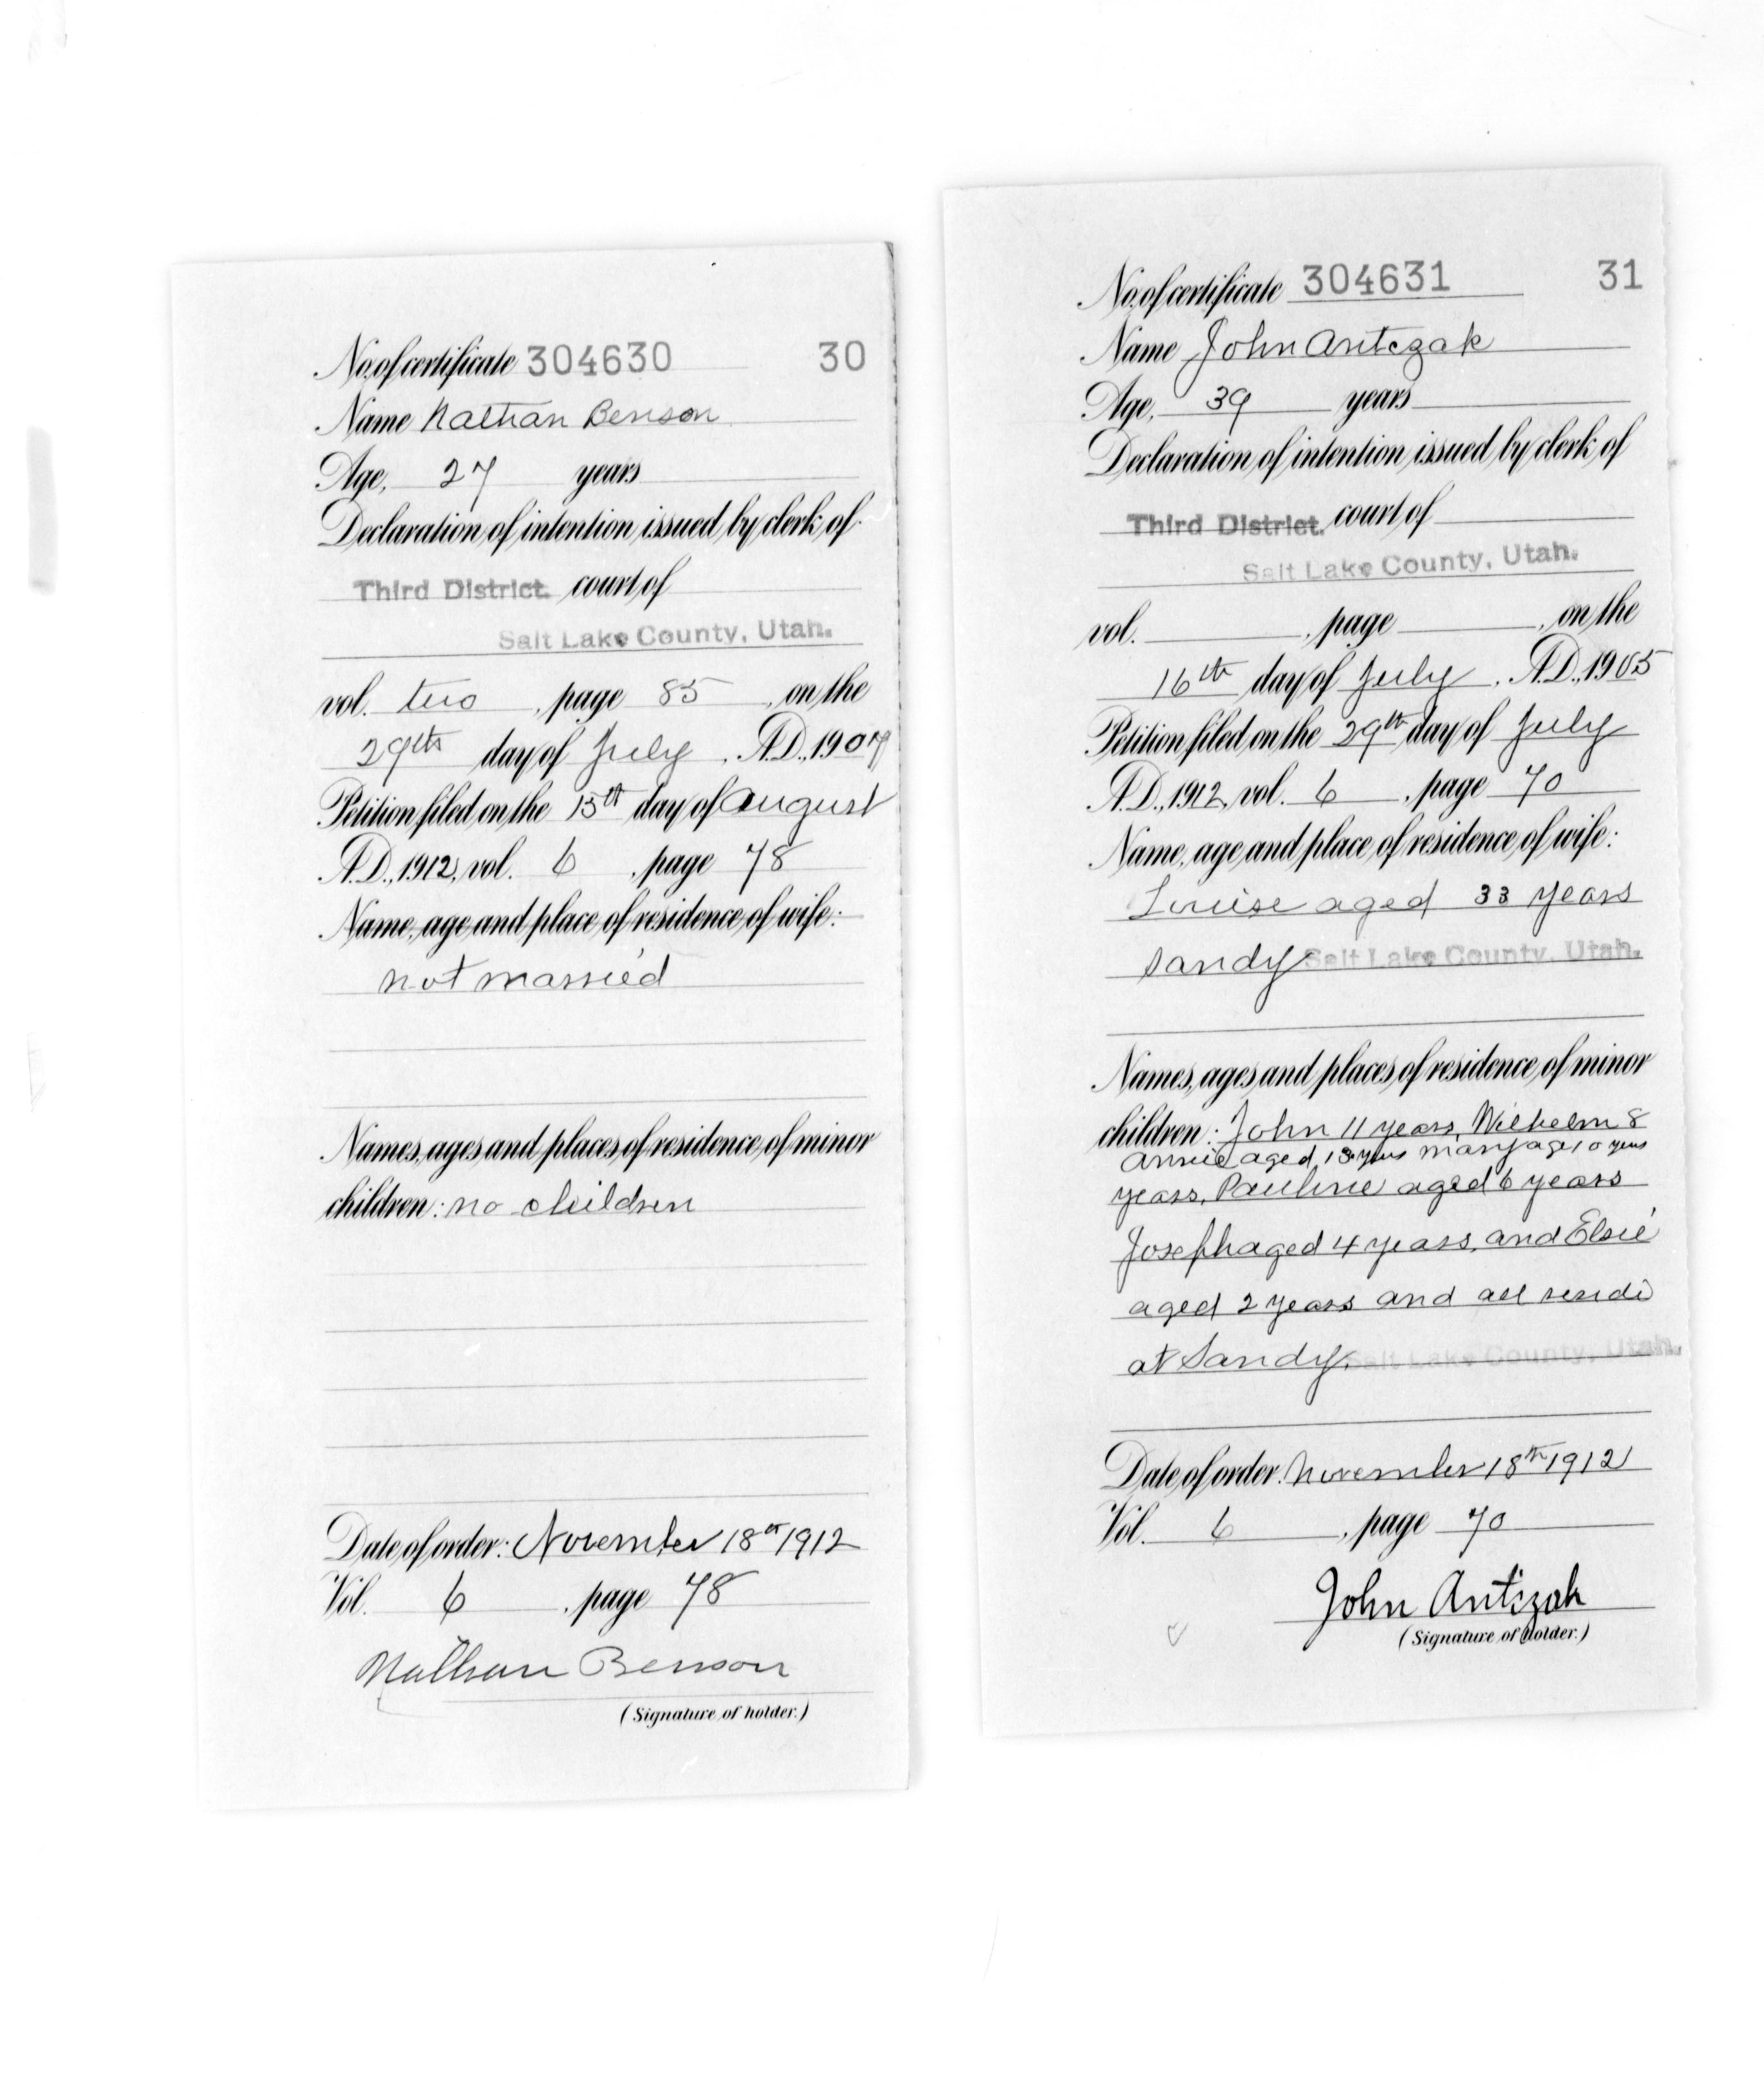 No. of certificate 304630 30
Name Nathan Benson
Age, 27 years
Declaration of intention issued by clerk of
Third District. court of
Salt Lake County, Utah.
vol. two, page 85, on the
29th day of July, A.D., 1907
Petition filed on the 15th day of August
A.D., 1912, vol. 6, page 78
Name, age and place of residence of wife:
not married
Names, ages and places of residence of minor
children: no children
Date of order: November 18th 1912
Vol. 6, page 78
Nathan Benson
(Signature of holder.)
No. of certificate 304631 31
Name John Antczak
Age, 39 years
Declaration of intention issued by clerk of
Third District. court of
Salt Lake County, Utah.
vol. , page , on the
16th day of July, A.D., 1905
Petition filed on the 29th day of July
A.D., 1912, vol. 6, page 70
Name, age and place of residence of wife:
Louise aged 33 years
Sandy Salt Lake County, Utah.
Names, ages and places of residence of minor
children: John 11 years, Wilhelm 8
Annie aged 13 years Mary age 10 years
years, Pauline aged 6 years
Joseph aged 4 years, and Elsie
aged 2 years and all reside
at Sandy, Salt Lake County, Utah.
Date of order: November 18th 1912
Vol. 6, page 70
John Antczak
(Signature of holder.)